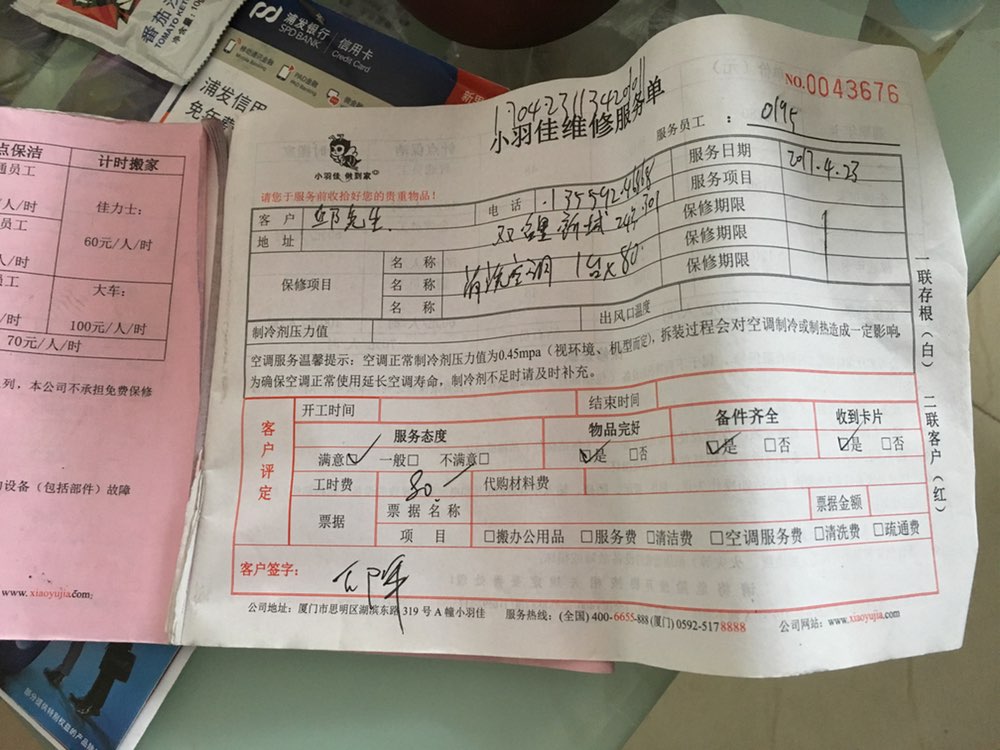 番茄沙
TOMATO KET
净含量：10
浦发银行
SPD BANK
信用卡
Credit Card
浦发信用
免年费
点保洁
计时搬家
通员工
/人/时
佳力士：
60元/人/时
员工
/人/时
员工
大车：
/时
100元/人/时
70元/人/时
列，本公司不承担免费保修
设备（包括部件）故障
www.xiaoyujia.com;
部分提供特别权益的产品
NO.0043676
17042311342011
小羽佳维修服务单
服务员工 ： 0195
小羽佳 做到家
请您于服务前收拾好您的贵重物品！
服务日期 2017.4.23
客 户 邱先生
电 话
服务项目
地 址
保修期限
保修项目
名 称 清洗空调 1台×80
保修期限
名 称
保修期限
名 称
制冷剂压力值
出风口温度
空调服务温馨提示：空调正常制冷剂压力值为0.45mpa（视环境、机型而定），拆装过程会对空调制冷或制热造成一定影响，
为确保空调正常使用延长空调寿命，制冷剂不足时请及时补充。
客户评定
开工时间
结束时间
服务态度
物品完好
备件齐全
收到卡片
满意☑ 一般□ 不满意□
☑是 □否
☑是 □否
☑是 □否
工时费 80.
代购材料费
票据
票 据 名 称
票据金额
项 目
□搬办公用品 □服务费 □清洁费 □空调服务费 □清洗费 □疏通费
客户签字：
公司地址：厦门市思明区湖滨东路 319 号 A 幢小羽佳
服务热线：(全国) 400-6655-888 (厦门) 0592-5178888
公司网站：www.xiaoyujia.com
一联存根（白） 二联客户（红）